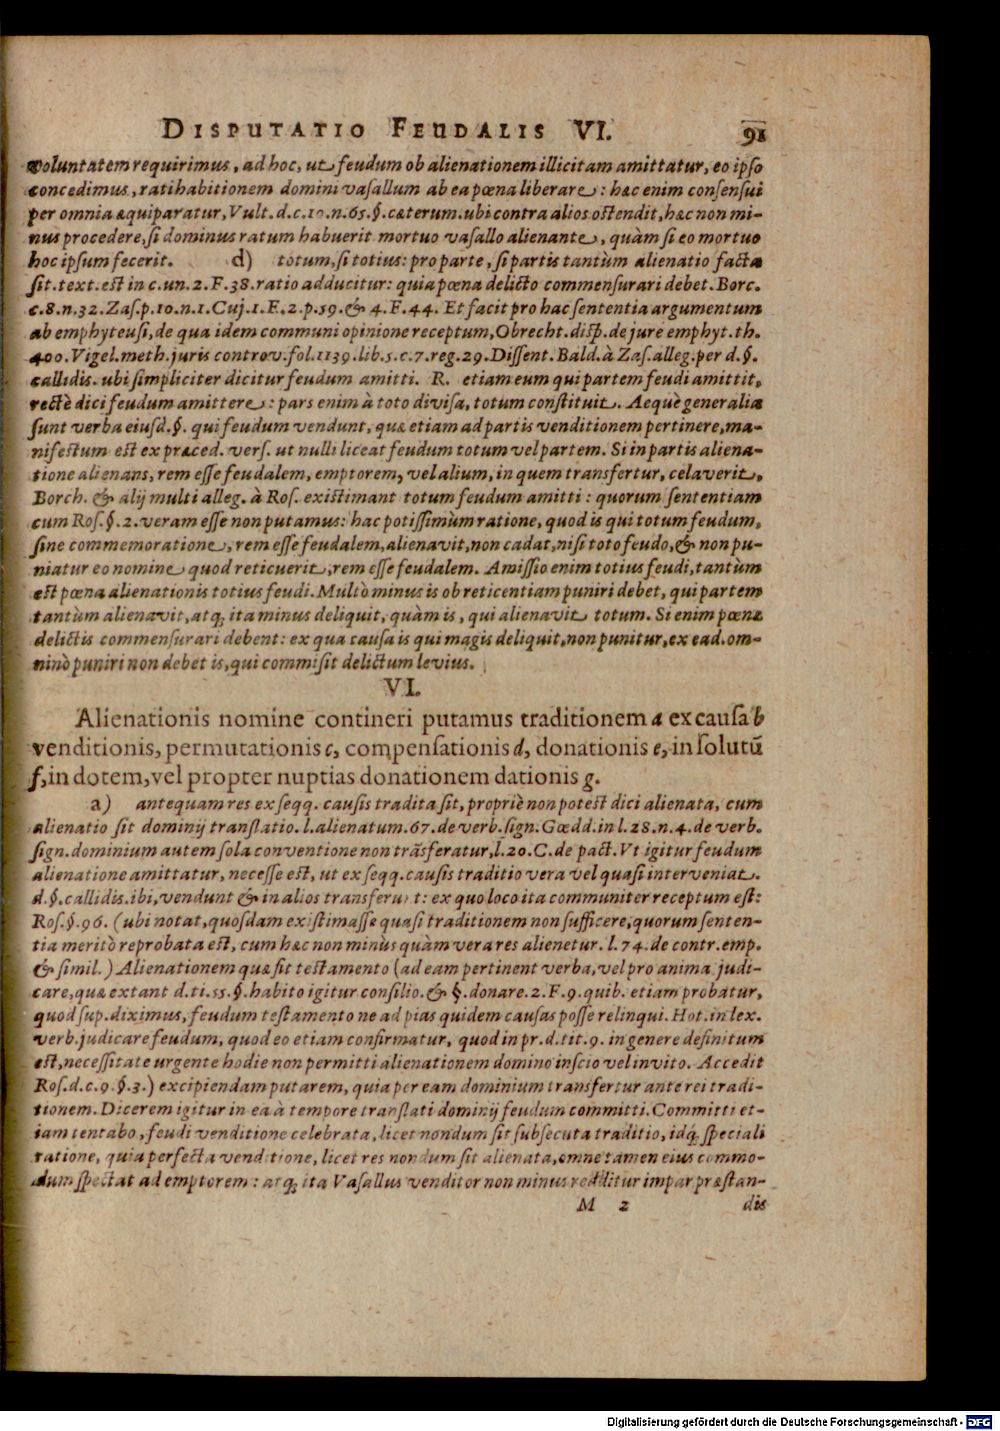 DISPUTATIO FEUDALIS VI. 91
voluntatem requirimus, ad hoc, ut feudum ob alienationem illicitam amittatur, eo ipſo
concedimus, ratihabitionem domini vaſallum ab ea pœna liberare: hæc enim conſenſui
per omnia æquiparatur, Vult. d. c. 10. n. 65. §. cæterum. ubi contra alios oſtendit, hæc non mi-
nus procedere, ſi dominus ratum habuerit mortuo vaſallo alienante, quàm ſi eo mortuo
hoc ipſum fecerit. d) totum, ſi totius: pro parte, ſi partis tantùm alienatio facta
ſit. text. eſt in c. un. 2. F. 38. ratio adducitur: quia pœna delicto commenſurari debet. Borc.
c. 8. n. 32. Zaſ. p. 10. n. 1. Cuj. 1. F. 2. p. 59. & 4. F. 44. Et facit pro hac ſententia argumentum
ab emphyteuſi, de qua idem communi opinione receptum, Obrecht. diſp. de jure emphyt. th.
400. Vigel. meth. juris controv. fol. 1139. lib. 5. c. 7. reg. 29. Diſſent. Bald. à Zaſ. alleg. per d. §.
callidis. ubi ſimpliciter dicitur feudum amitti. R. etiam eum qui partem feudi amittit,
rectè dici feudum amittere: pars enim à toto diviſa, totum conſtituit. Aequè generalia
ſunt verba eiuſd. §. qui feudum vendunt, quæ etiam ad partis venditionem pertinere, ma-
nifeſtum eſt ex præced. verſ. ut nulli liceat feudum totum vel partem. Si in partis aliena-
tione alienans, rem eſſe feudalem, emptorem, vel alium, in quem transfertur, celaverit,
Borch. & alij multi alleg. à Roſ. exiſtimant totum feudum amitti: quorum ſententiam
cum Roſ. §. 2. veram eſſe non putamus: hac potiſſimùm ratione, quod is qui totum feudum,
ſine commemoratione, rem eſſe feudalem, alienavit, non cadat, niſi toto feudo, & non pu-
niatur eo nomine quod reticuerit, rem eſſe feudalem. Amiſſio enim totius feudi, tantùm
eſt pœna alienationis totius feudi. Multò minus is ob reticentiam puniri debet, qui partem
tantùm alienavit, atq; ita minus deliquit, quàm is, qui alienavit totum. Si enim pœnæ
delictis commenſurari debent: ex qua cauſa is qui magis deliquit, non punitur, ex ead. om-
ninò puniri non debet is, qui commiſit delictum levius.
VI.
Alienationis nomine contineri putamus traditionem a ex cauſa b
venditionis, permutationis c, compenſationis d, donationis e, in ſolutū
f, in dotem, vel propter nuptias donationem dationis g.
a) antequam res ex ſeqq. cauſis tradita ſit, propriè non poteſt dici alienata, cum
alienatio ſit dominij tranſlatio. l. alienatum. 67. de verb. ſign. Gœdd. in l. 28. n. 4. de verb.
ſign. dominium autem ſola conventione non trāsferatur, l. 20. C. de pact. Vt igitur feudum
alienatione amittatur, neceſſe eſt, ut ex ſeqq. cauſis traditio vera vel quaſi interveniat.
d. §. callidis. ibi, vendunt & in alios transferunt: ex quo loco ita communiter receptum eſt:
Roſ. §. 96. (ubi notat, quoſdam exiſtimaſſe quaſi traditionem non ſufficere, quorum ſenten-
tia meritò reprobata eſt, cum hæc non minùs quàm vera res alienetur. l. 74. de contr. emp.
& ſimil.) Alienationem quæ fit teſtamento (ad eam pertinent verba, vel pro anima judi-
care, quæ extant d. ti. 55. §. habito igitur conſilio. & §. donare. 2. F. 9. quib. etiam probatur,
quod ſup. diximus, feudum teſtamento ne ad pias quidem cauſas poſſe relinqui. Hot. in lex.
verb. judicare feudum, quod eo etiam confirmatur, quod in pr. d. tit. 9. in genere definitum
eſt, neceſſitate urgente hodie non permitti alienationem domino inſcio vel invito. Accedit
Roſ. d. c. 9. §. 3.) excipiendam putarem, quia per eam dominium transfertur ante rei tradi-
tionem. Dicerem igitur in ea à tempore tranſlati dominij feudum committi. Committi et-
iam tentabo, feudi venditione celebrata, licet nondum ſit ſubſecuta traditio, idq; ſpeciali
ratione, quia perfecta venditione, licet res nondum ſit alienata, omne tamen eius commo-
dum ſpectat ad emptorem: atq; ita Vaſallus venditor non minus redditur impar præſtan-
M 2 dis
Digitalisierung gefördert durch die Deutsche Forschungsgemeinschaft - DFG